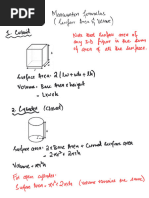 Mensuration formulas
(Surface Area & Volume)
1. Cuboid
Note that surface area of
any 3D figure is the sum
of area of all the surfaces.
Surface Area: 2(lw+wh+lh)
Volume = Base Area × height
= lwh
2. Cylinder (closed)
Surface area: 2×Base Area + Curved Surface area
= 2πr²+2πrh
Volume = πr²h
For open cylinder:
Surface Area = πr²+2πrh (volume remains the same)